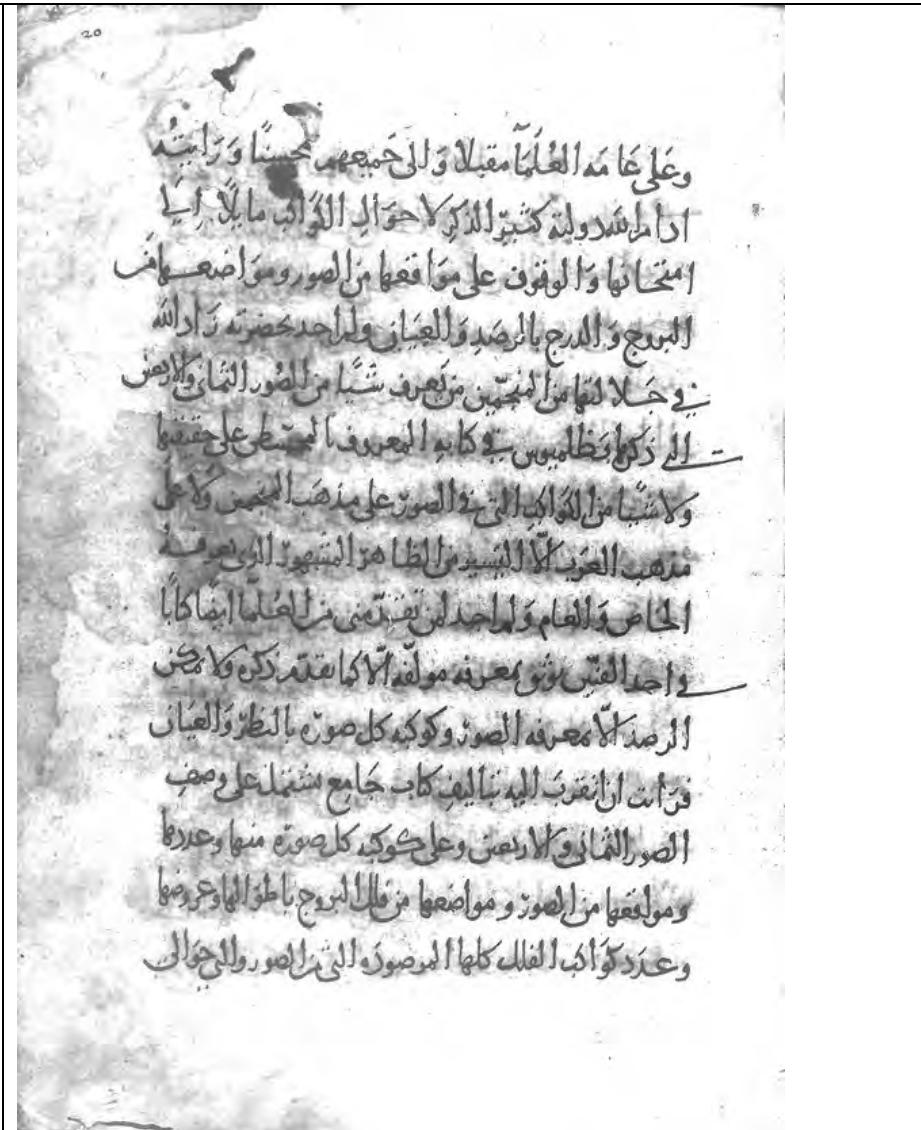 20
وعلى عامه العلما مقبلا والى جميعهم محسنا ورايته
ادام الله دولته كثير الذكر لاحوال الكواكب مايلا الى
امتحانها والوقوف على مواقعها من الصور ومواضعها من
البروج والدرج بالرصد والعيان ولم اجد بحضرته زاد الله
في جلالتها من المنجمين من يعرف شيا من الصور الثمانى والاربعين
التي ذكرها بطلميوس في كتابه المعروف بالمجسطي على حقيقتها
ولا شيا من الكواكب التي في الصور على مذهب المنجمين ولا على
مذهب العرب الا اليسير من الظاهر المشهور الذى يعرفه
الخاص والعام ولم اجد لمن تقدمنى من العلما ايضا كتابا
في احد الفنين يوثق بمعرفه مولفه الا كما تقدم ذكره ولا يمكن
الرصد الا بمعرفه الصور وكوكبه كل صوره بالنظر والعيان
فرايت ان اتقرب اليه بتاليف كتاب جامع يشتمل على وصف
الصور الثمانى والاربعين وعلى كوكبه كل صوره منها وعددها
ومواقعها من الصور ومواضعها من فلك البروج باطوالها وعروضها
وعدد كواكب الفلك كلها المرصوده التى من الصور والتي حوالى